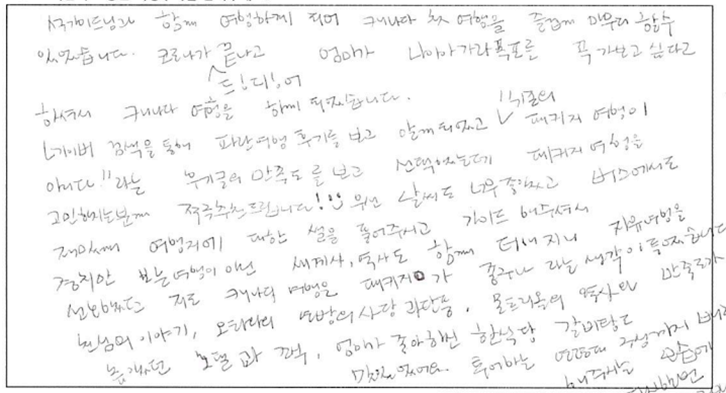 가이드님과 함께 여행하게 되어 캐나다 첫 여행을 즐겁게 마무리 할수
있었습니다. 코로나가 끝나고 엄마가 나이아가라폭포를 꼭 가보고 싶다고
드디어
하셔서 캐나다 여행을 함께 되었습니다.
네이버 검색을 통해 파란여행 후기를 보고 알게 되었고 "기존의 패키지 여행이
아니다"라는 후기글의 만족도를 보고 선택했는데 패키지 여행을
고민하시는분께 적극추천드립니다! 우선 날씨도 너무 좋았고 버스에서도
재미있게 여행지에 대한 썰을 풀어주시고 가이드 해주셔서
경치만 보는여행이 아닌 세계사, 역사도 함께 더해지니 자유여행을
선호했던 저도 캐나다 여행을 패키지로 가 좋구나 라는 생각이 들었습니다
천섬의 이야기, 오타와의 국회의사당, 몬트리올의 역사와 만족도가
높았던 호텔과 객, 엄마가 좋아하던 한식당 갈비탕도
맛있었어요. 투어하는
해주시는 모습에